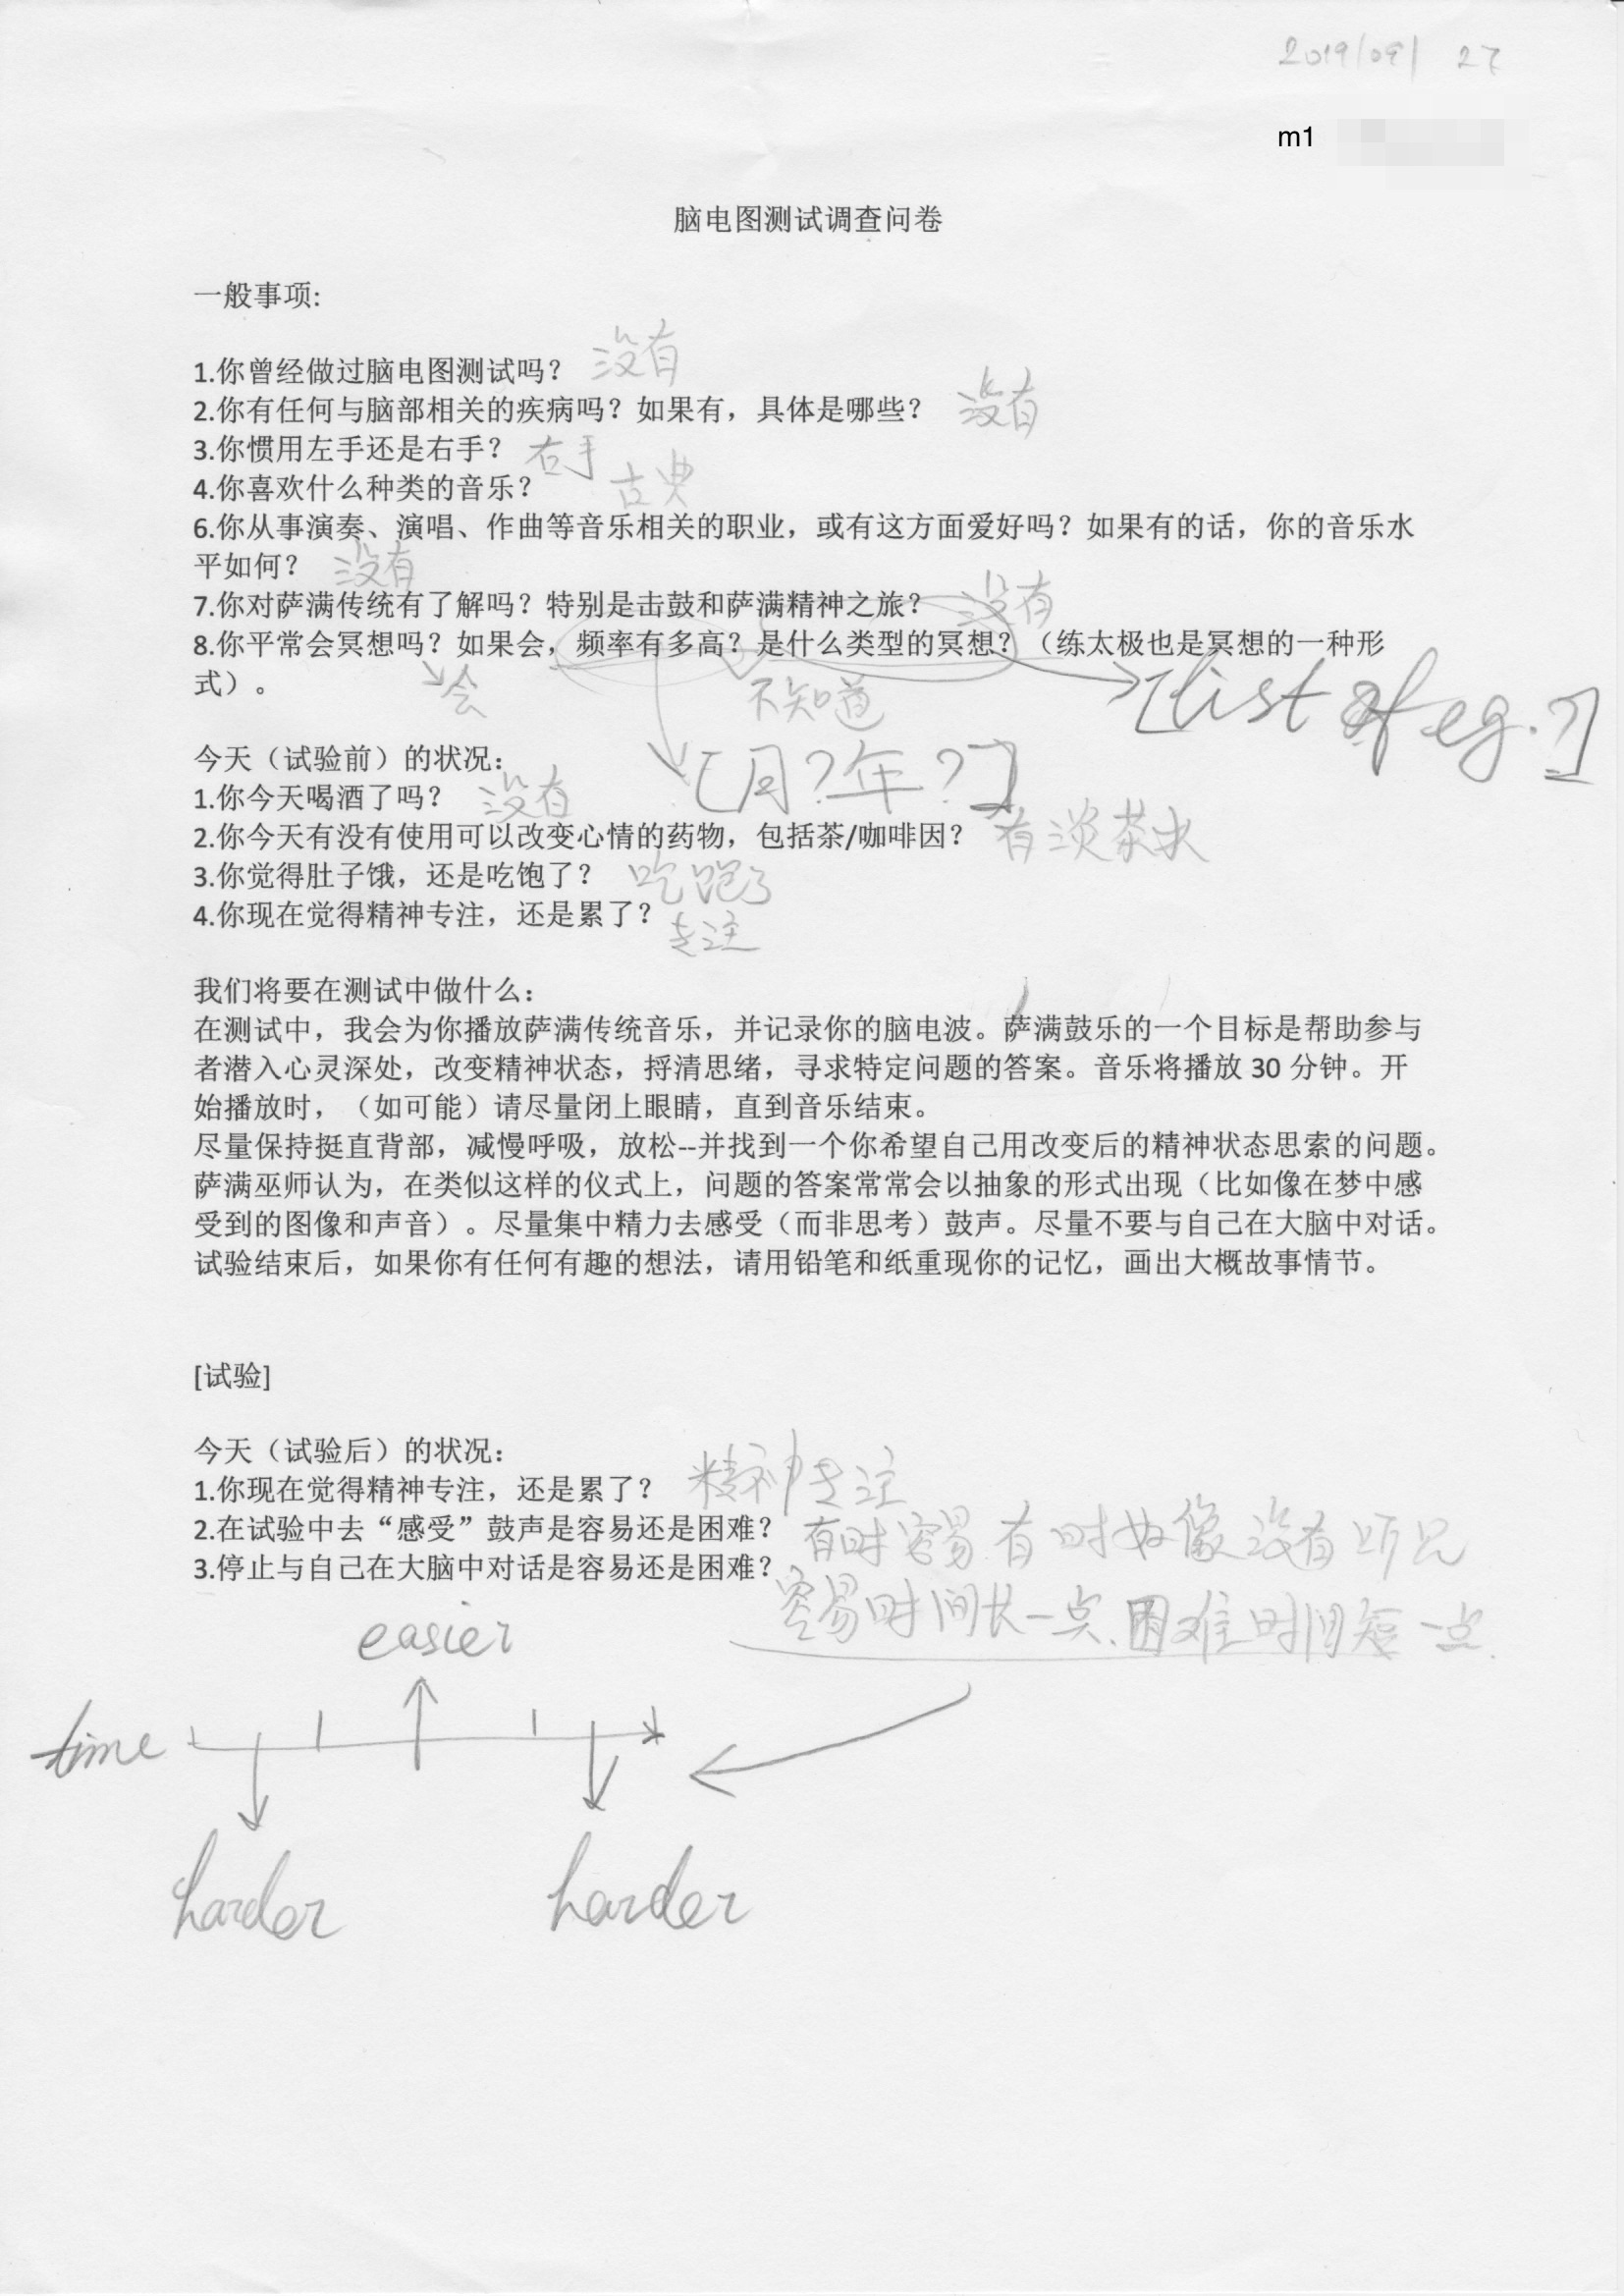 2019/09/ 27
m1
脑电图测试调查问卷
一般事项:
1.你曾经做过脑电图测试吗？ 没有
2.你有任何与脑部相关的疾病吗？如果有，具体是哪些？ 没有
3.你惯用左手还是右手？ 右手
4.你喜欢什么种类的音乐？ 古典
6.你从事演奏、演唱、作曲等音乐相关的职业，或有这方面爱好吗？如果有的话，你的音乐水
平如何？ 没有
7.你对萨满传统有了解吗？特别是击鼓和萨满精神之旅？ 没有
8.你平常会冥想吗？如果会，频率有多高？是什么类型的冥想？（练太极也是冥想的一种形
式）。 会 不知道 [list of eg.?]
今天（试验前）的状况： [月?年?]
1.你今天喝酒了吗？ 没有
2.你今天有没有使用可以改变心情的药物，包括茶/咖啡因？ 有淡茶水
3.你觉得肚子饿，还是吃饱了？ 吃饱了
4.你现在觉得精神专注，还是累了？ 专注
我们将要在测试中做什么：
在测试中，我会为你播放萨满传统音乐，并记录你的脑电波。萨满鼓乐的一个目标是帮助参与
者潜入心灵深处，改变精神状态，捋清思绪，寻求特定问题的答案。音乐将播放 30 分钟。开
始播放时，（如可能）请尽量闭上眼睛，直到音乐结束。
尽量保持挺直背部，减慢呼吸，放松--并找到一个你希望自己用改变后的精神状态思索的问题。
萨满巫师认为，在类似这样的仪式上，问题的答案常常会以抽象的形式出现（比如像在梦中感
受到的图像和声音）。尽量集中精力去感受（而非思考）鼓声。尽量不要与自己在大脑中对话。
试验结束后，如果你有任何有趣的想法，请用铅笔和纸重现你的记忆，画出大概故事情节。
[试验]
今天（试验后）的状况：
1.你现在觉得精神专注，还是累了？ 精神专注
2.在试验中去“感受”鼓声是容易还是困难？ 有时容易 有时好像没有听见
3.停止与自己在大脑中对话是容易还是困难？ 容易时间长一点、困难时间短一点.
easier
time
harder harder